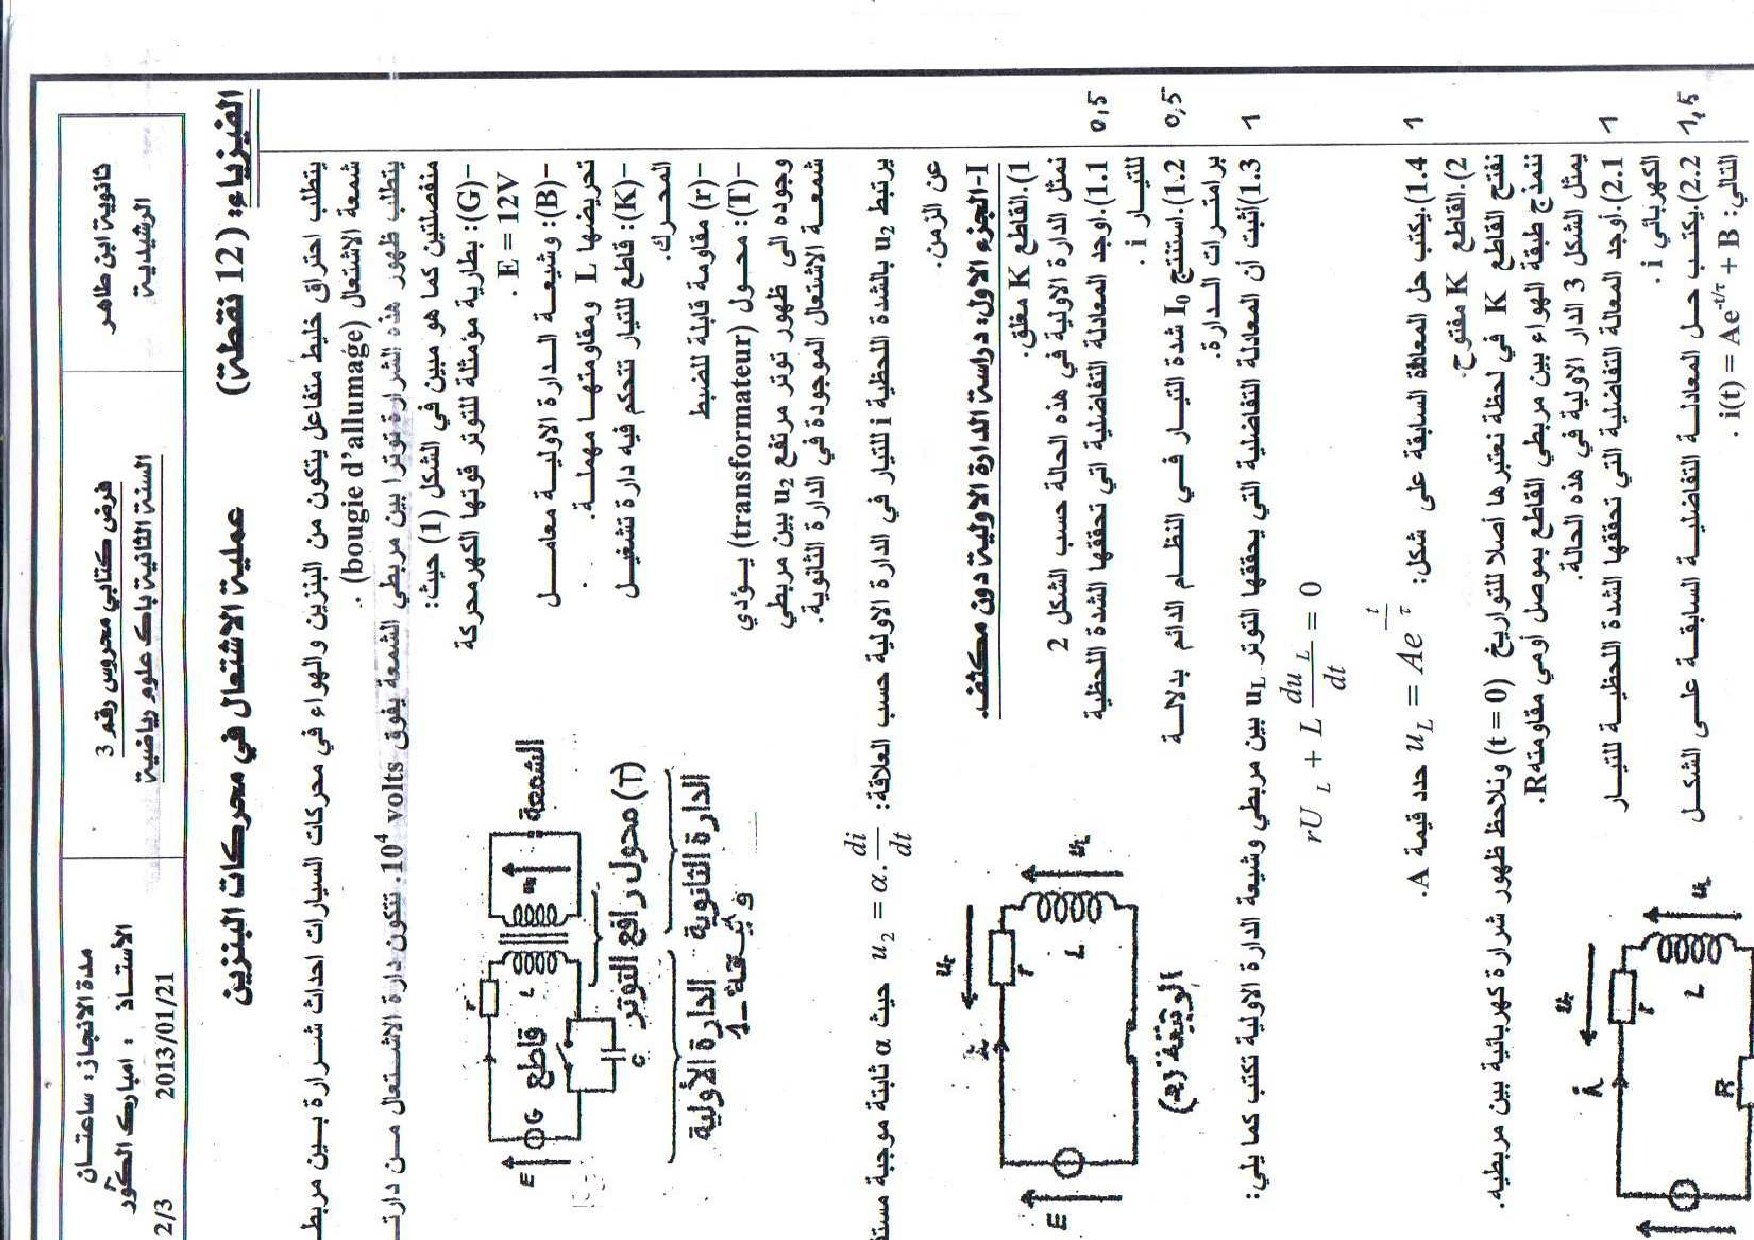 ثانوية ابن طاهر
الرشيدية
فرض كتابي محروس رقم 3
السنة الثانية باك علوم رياضية
مدة الانجاز: ساعتان
الأستاذ : امبارك الكور
2013/01/21
2/3
الفيزياء: (12 نقطة)
عملية الاشتعال في محركات البنزين
يتطلب احتراق خليط متفاعل يتكون من البنزين والهواء في محركات السيارات احداث شرارة بين مربط
شمعة الاشتعال (bougie d'allumage) .
يتطلب ظهور هذه الشرارة توترا بين مربطي الشمعة يفوق 10⁴ volts . تتكون دارة الاشتعال من دارتـ
منفصلتين كما هو مبين في الشكل (1) حيث:
-(G): بطارية مؤمثلة للتوتر قوتها الكهرمحركة
E = 12V .
-(B): وشيعة الدارة الاولية معامل
تحريضها L ومقاومتها مهملة.
-(K): قاطع للتيار تتحكم فيه دارة تشغيل
المحرك.
-(r) مقاومة قابلة للضبط
-(T): محول (transformateur) يؤدي
وجوده الى ظهور توتر مرتفع u₂ بين مربطي
شمعة الاشتعال الموجودة في الدارة الثانوية.
E
G
r
قاطع
L
C
u₂
الشمعة
(T) محول رافع التوتر
الدارة الأولية
الدارة الثانوية
وثيقة-1
يرتبط u₂ بالشدة اللحظية i للتيار في الدارة الاولية حسب العلاقة: u₂ = α. di/dt حيث α ثابتة موجبة مستقـ
عن الزمن.
I-الجزء الاول: دراسة الدارة الاولية دون مكثف.
1).القاطع K مغلق.
نمثل الدارة الاولية في هذه الحالة حسب الشكل 2
1.1).اوجد المعادلة التفاضلية اتي تحققها الشدة اللحظية 0,5
للتيار i .
1.2).استنتج I₀ شدة التيار في النظام الدائم بدلالة 0,5
برامترات الدارة.
E
i
uᵣ
r
L
u_L
1.3)أثبت أن المعادلة التفاضلية التي يحققها التوتر u_L بين مربطي وشيعة الدارة الاولية تكتب كما يلي: 1
rU_L + L du_L/dt = 0
1.4).يكتب حل المعادلة السابقة على شكل: u_L = Ae^(-t/τ) حدد قيمة A. 1
2).القاطع K مفتوح.
نفتح القاطع K في لحظة نعتبرها أصلا للتواريخ (t = 0) ونلاحظ ظهور شرارة كهربائية بين مربطيه.
ننمذج طبقة الهواء بين مربطي القاطع بموصل أومي مقاومته R.
يمثل الشكل 3 الدار الاولية في هذه الحالة.
2.1).أوجد المعالة التفاضلية التي تحققها الشدة اللحظية للتيار 1
الكهربائي i .
2.2).يكتب حل المعادلة التفاضلية السابقة على الشكل 1,5
التالي: i(t) = Ae^(-t/τ) + B .
i
uᵣ
r
L
u_L
R